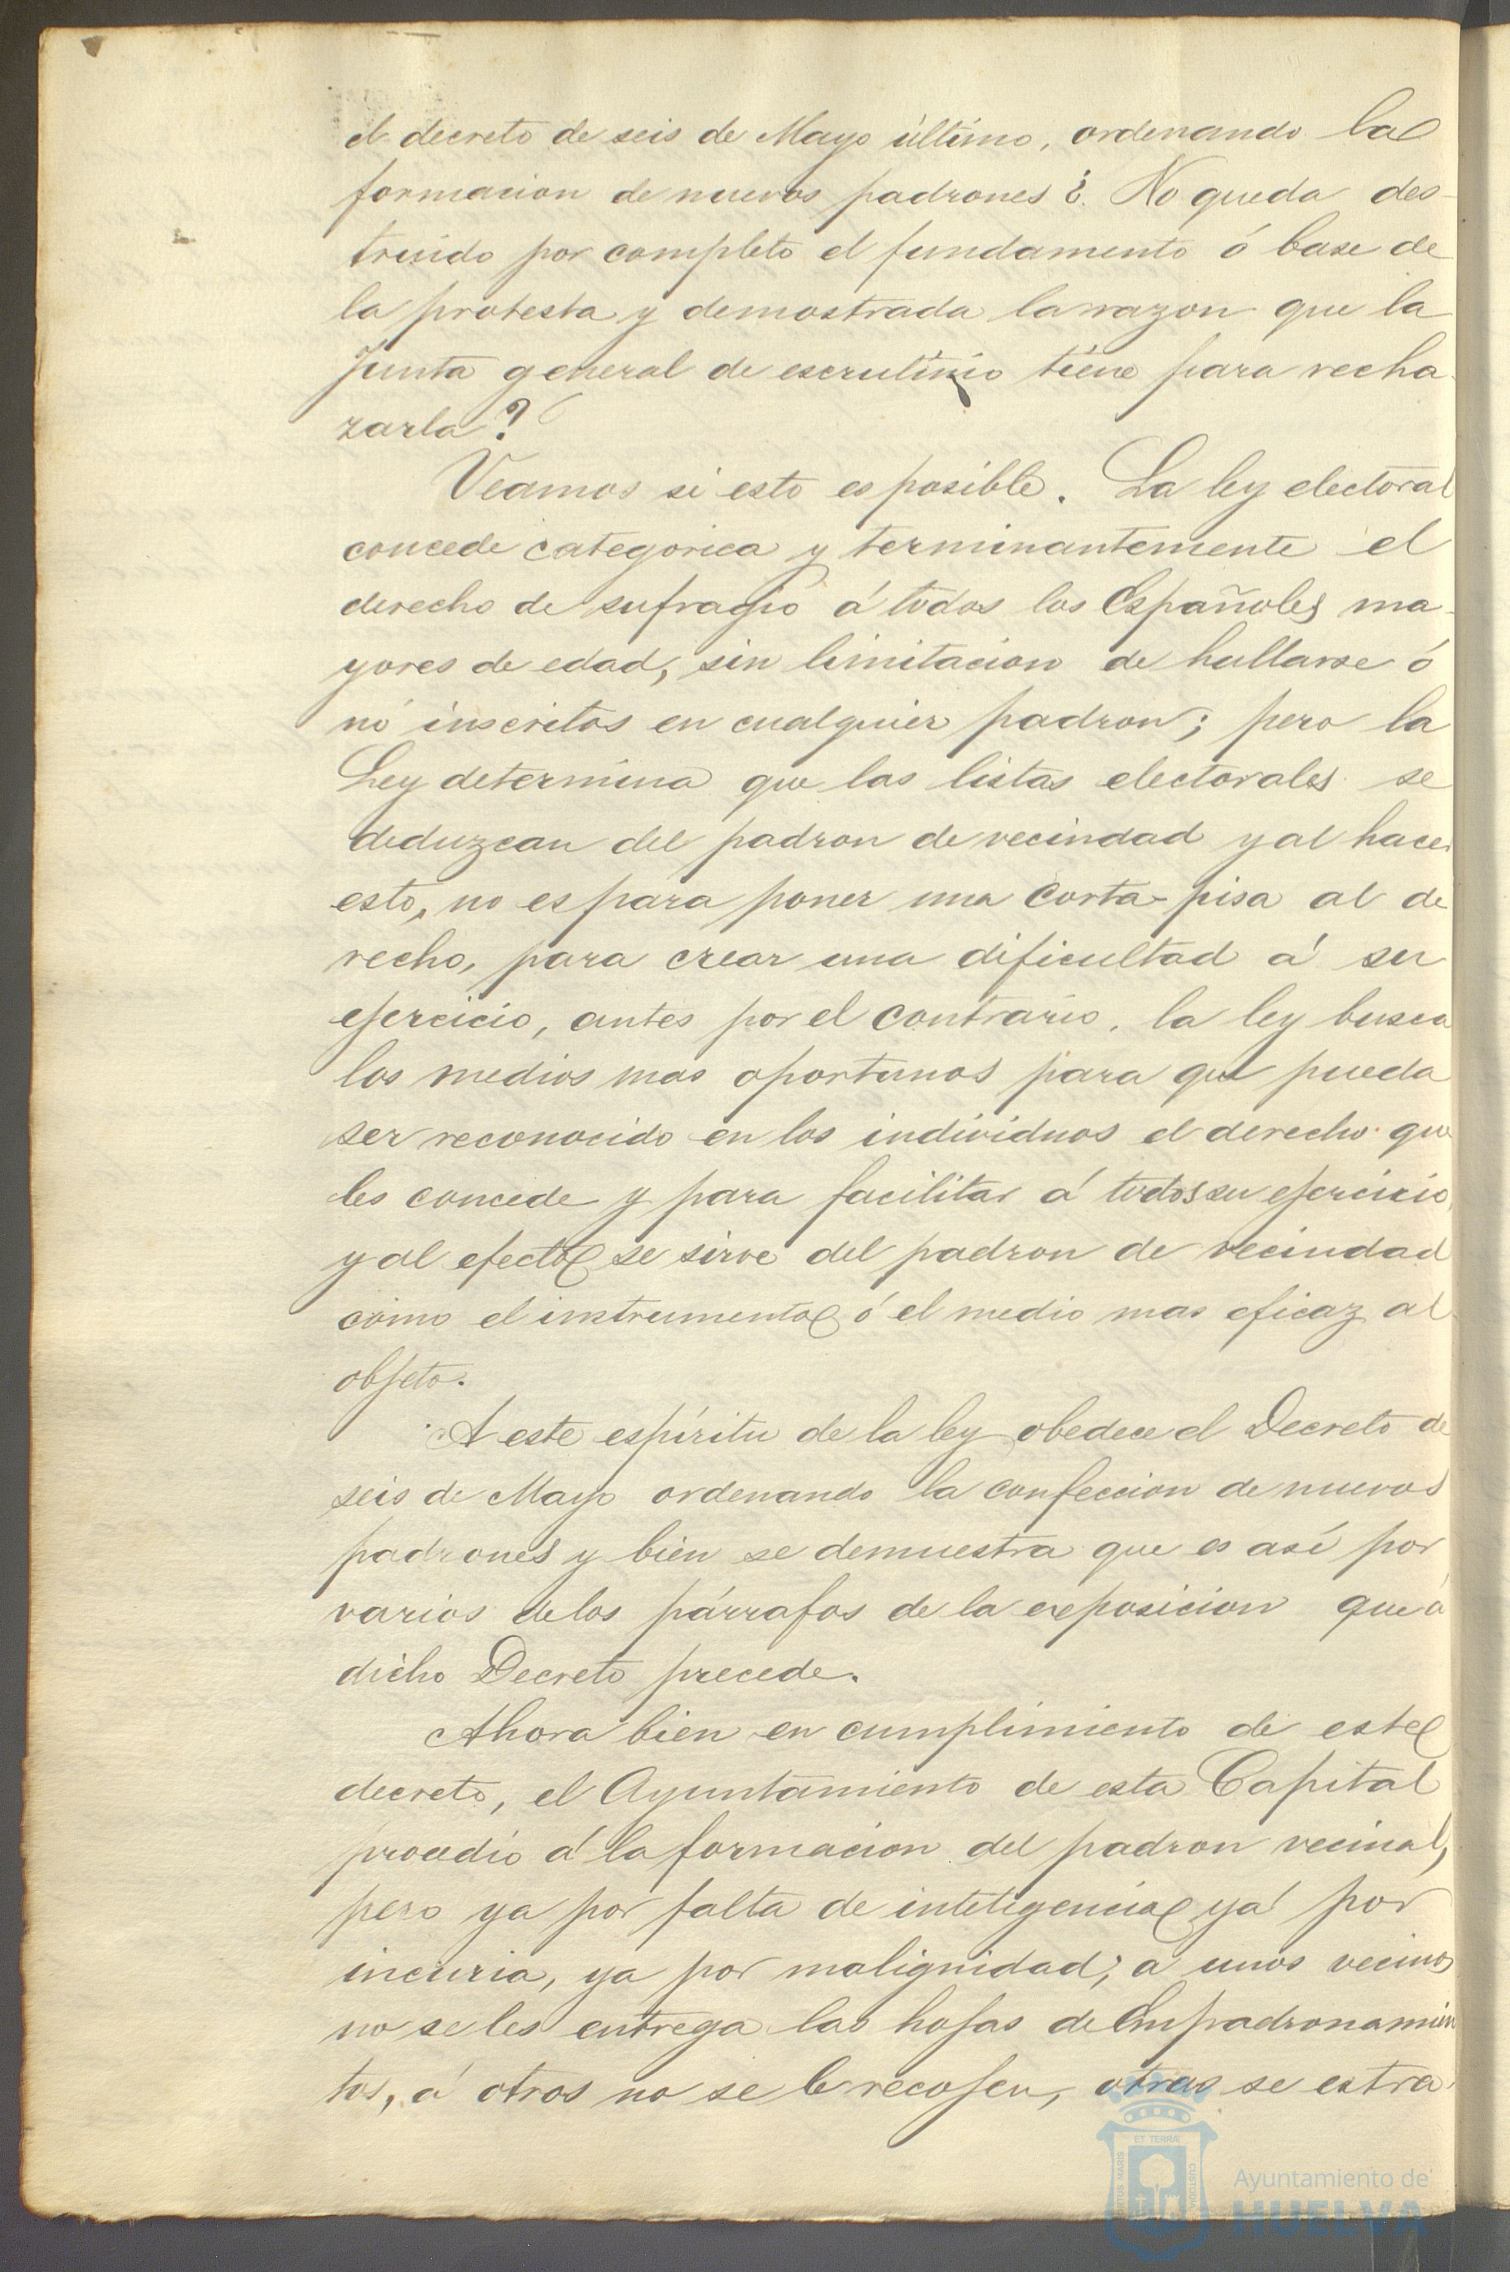 el decreto de seis de Mayo último, ordenando la
formacion de nuevos padrones ¿. No queda des-
truido por completo el fundamento ó base de
la protesta y demostrada la razon que la
Junta general de escrutinio tiene para recha-
zarla?
Veamos si esto es posible. La ley electoral
concede categorica y terminantemente el
derecho de sufragio á todos los Españoles ma-
yores de edad, sin limitacion de hallarse ó
nó inscritos en cualquier padron; pero la
Ley determina que las listas electorales se
deduzcan del padron de vecindad y al hacer
esto, no es para poner una corta-pisa al de
recho, para crear una dificultad á su
ejercicio, antes por el contrario, la ley busca
los medios mas oportunos para que pueda
ser reconocido en los individuos el derecho que
les concede y para facilitar á todos su ejercicio
y al efecto se sirve del padron de vecindad
como el instrumento ó el medio mas eficaz al
objeto.
A este espíritu de la ley obedece el Decreto de
seis de Mayo ordenando la confeccion de nuevos
padrones y bien se demuestra que es así por
varios de los párrafos de la exposicion que á
dicho Decreto precede.
Ahora bien en cumplimiento de este
decreto, el Ayuntamiento de esta Capital
procedió á la formacion del padron vecinal,
pero ya por falta de inteligencia ya por
incuria, ya por malignidad, a unos vecinos
no se les entrega las hojas de Empadronamien
tos, á otros no se le recojen, otras se estra-
ET TERRÆ
PORTUS MARIS
CUSTODIA
Ayuntamiento de
HUELVA